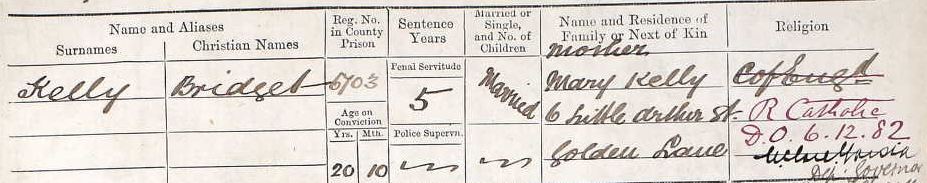 Name and Aliases
Surnames
Christian Names
Reg. No. in County Prison
Sentence Years
Married or Single, and No. of Children
Name and Residence of Family or Next of Kin
Religion
Kelly
Bridget
5703
Age on Conviction
Yrs. Mth.
20 10
Penal Servitude
5
Police Supervn.
Married
Mother
Mary Kelly
6 Little Arthur St.
Golden Lane
C of Engd
R Catholic
D.O. 6.12.82
Dep. Governor